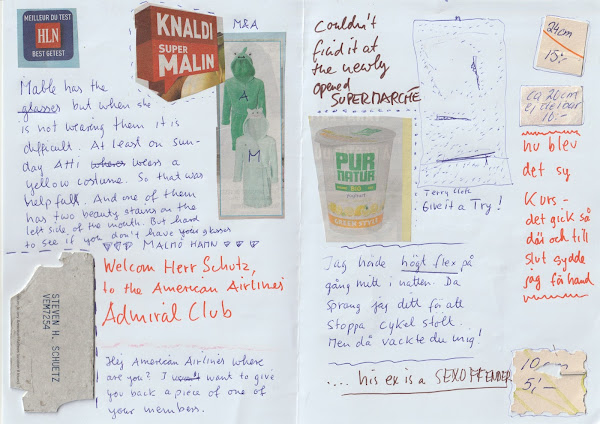 MEILLEUR DU TEST
HLN
BEST GETEST
KNALDI
SUPER
MALIN
M&A
A
M
Mable has the
glasses but when she
is not wearing them it is
difficult. At least on sun-
day Atti wears a
yellow costume. So that was
help full. And one of them
has two beauty stains on the
left side of the mouth. But hard
to see if you don't have your glasses
MALMÖ HAMN
Welcom Herr Schutz,
to the American Airlines
Admiral Club
STEVEN H. SCHUETZ
VEM7254
Hej American Airlines where
are you? I want to give
you back a piece of one of
your members.
Couldn't
find it at
the newly
opened
SUPERMARCHÉ
PUR
NATUR
BIO
Yoghurt
Terry cloth
Give it a Try!
Jag hörde högt flex på
gång mitt i natten. Da
sprang jag dett för att
stoppa cykel stölt.
Men då väckte du mig!
.... his ex is a SEXOFFENDER
24cm
15:-
ca 26cm
ej delbar
10:-
nu blev
det sy
Kurs -
det gick så
där och till
slut sydde
jag för hand
10 cm
5:-